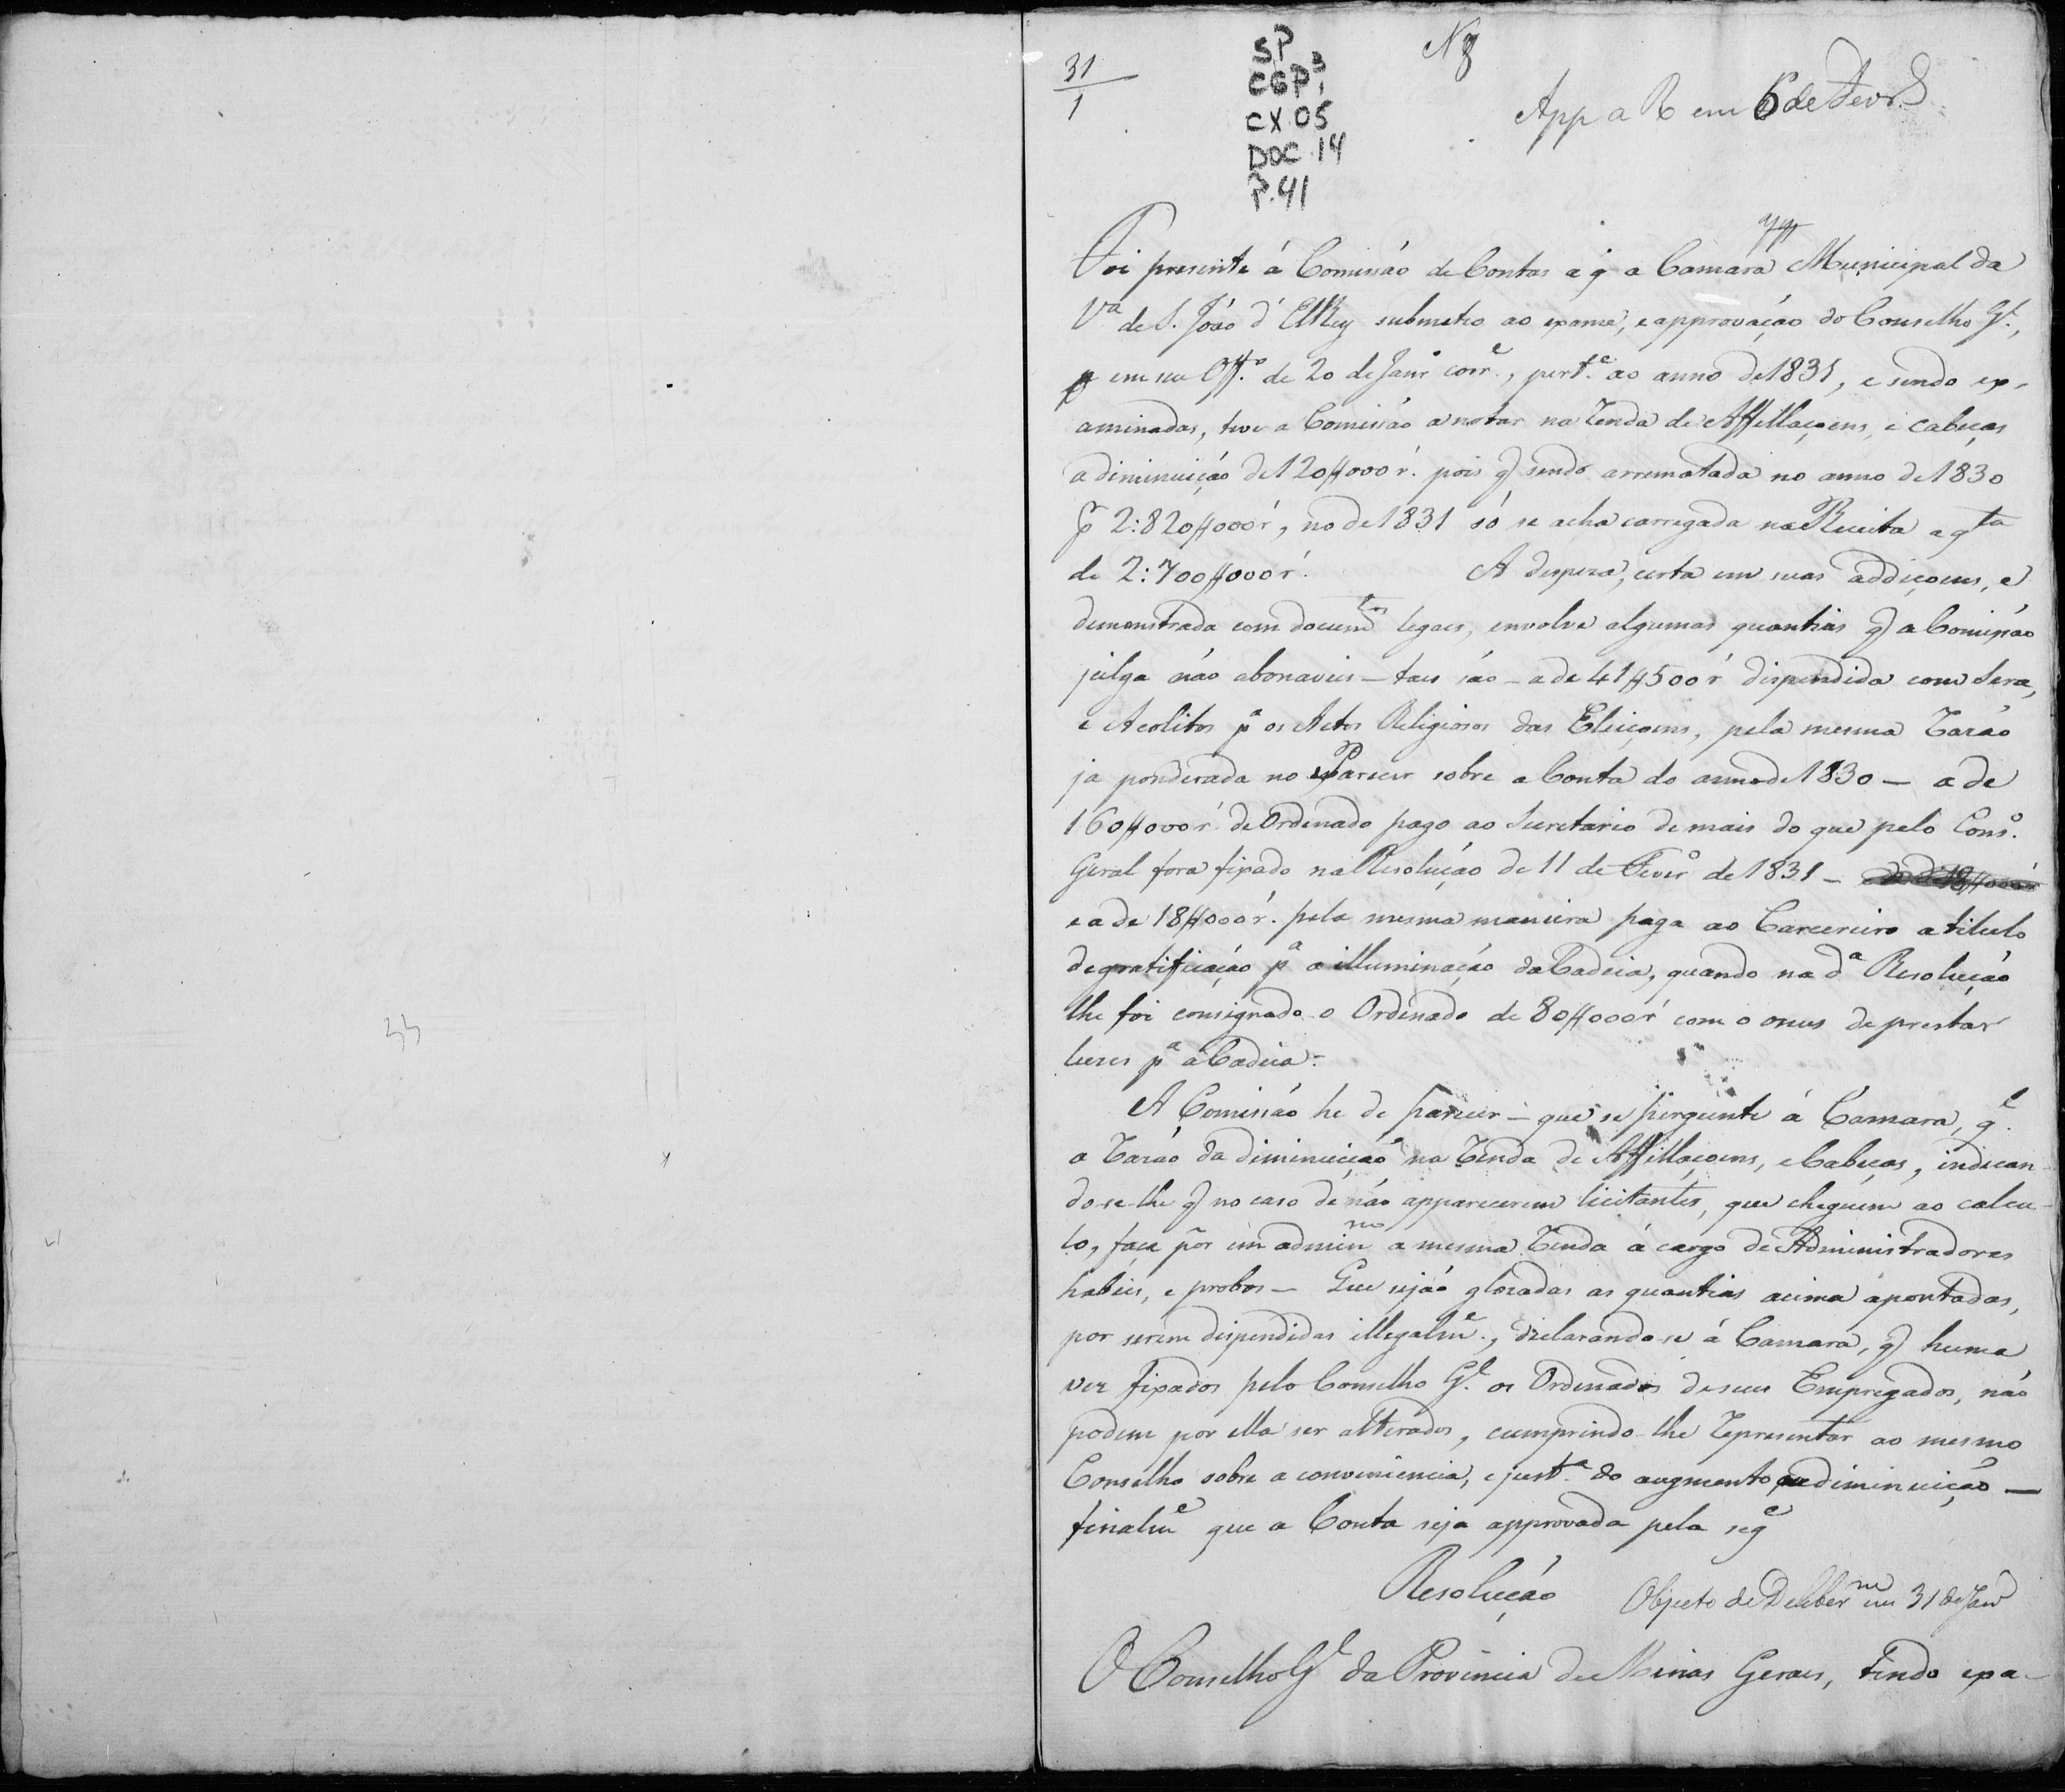 31
1
SP
CGP³.
CX.05
DOC.14
P.41
N 8
App a R em 6 de Fevr.º
Foi presente á Comissão de Contas a q̃ a Camara Municipal da
Vª de S. João d'ElRey submeteo ao exame, e approvação do Conselho Gˡ.,
em seu Off.º de 20 de Janrº corrᵉ., pertᵉ. ao anno de 1831, e sendo ex-
aminadas, teve a Comissão a notar na Renda de Affillaçoens, e cabeças
a diminuição de 120$000 r̃. pois q̃ sendo arrematada no anno de 1830
p̃ 2:820$000 r̃, no de 1831 só se acha carregada na Receita a qᵗᵃ
de 2:700$000 r̃. A despeza, certa em suas addiçoens, e
demonstrada com documᵗᵒˢ legaes, envolve algumas quantias q̃ a Comissão
julga não abonaveis — taes são — a de 41$500 r̃ dispendida com Sera,
e Acolitos pª os Actos Religiosos das Eleiçoens, pela mesma Razão
ja ponderada no Parecer sobre a Conta do anno de 1830 — a de
160$000 r̃. de Ordenado pago ao Secretario de mais do que pelo Consº.
Geral fora fixado na Resolução de 11 de Fevrº de 1831 —
e a de 18$000 r̃. pela mesma maneira paga ao Carcereiro a titulo
de gratificação pª a illuminação da Cadeia, quando na dª Resolução
lhe foi consignado o Ordenado de 80$000 r̃ com o onus de prestar
luzes pª a Cadeia.
A Comissão he de parecer — que se pergunte á Camara, qˡ.
a Razão da diminuição na Renda de Affillaçoens, e Cabeças, indican-
do-se-lhe q̃ no caso de não apparecerem licitantes, que cheguem ao calcu-
lo, faça pôr em adminᵐᵒ a mesma Renda á cargo de Administradores
habeis, e probos — Que sejão glozadas as quantias acima apontadas,
por serem dispendidas illegalmᵉ., declarando-se á Camara, q̃ huma
vez fixados pelo Conselho Gˡ. os Ordenados de seus Empregados, não
podem por ella ser alterados, cumprindo-lhe Representar ao mesmo
Conselho sobre a conveniencia, e justª. do augmento ou diminuição —
finalmᵉ que a Conta seja approvada pela segᵉ
Resolução Objecto de Deliberᵐ em 31 de Janʳ
O Conselho Gˡ da Provincia de Minas Geraes, tendo exa-